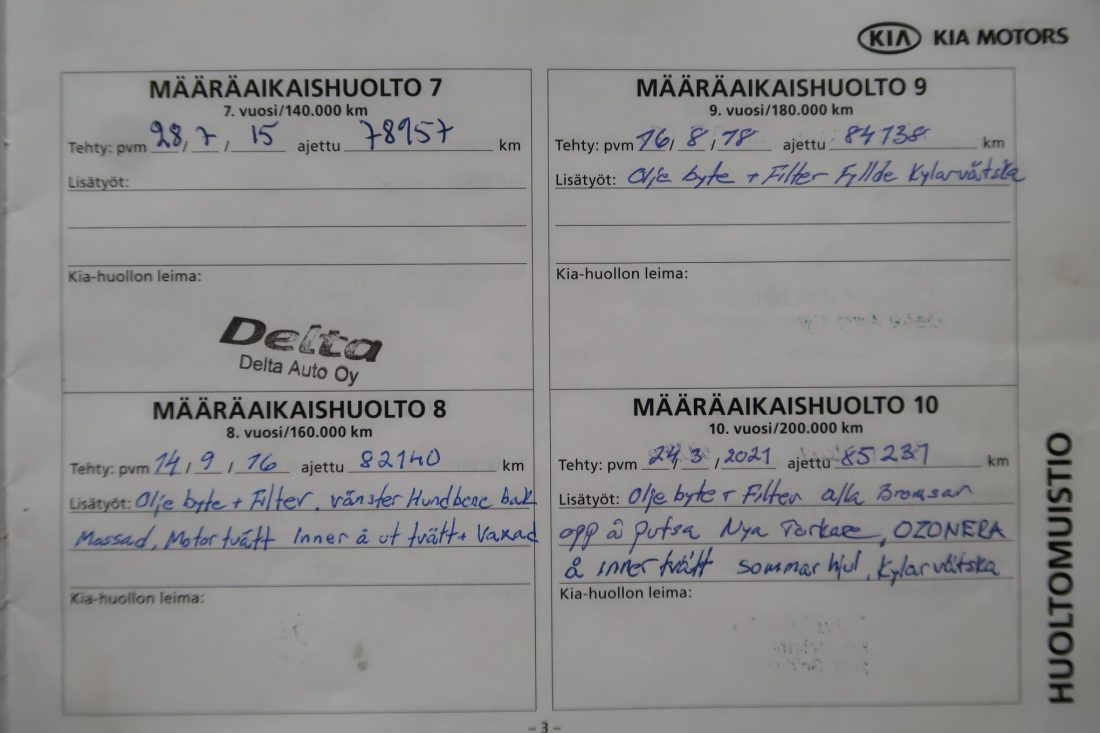 KIA KIA MOTORS
MÄÄRÄAIKAISHUOLTO 7
7. vuosi/140.000 km
Tehty: pvm 28 / 7 / 15 ajettu 78957 km
Lisätyöt:
Kia-huollon leima:
Delta
Delta Auto Oy
MÄÄRÄAIKAISHUOLTO 8
8. vuosi/160.000 km
Tehty: pvm 14 / 9 / 16 ajettu 82140 km
Lisätyöt: Olje byte + Filter, vänster Hundbene bak
Massad, Motor tvätt Inner å ut tvätt + Vaxad
Kia-huollon leima:
MÄÄRÄAIKAISHUOLTO 9
9. vuosi/180.000 km
Tehty: pvm 16 / 8 / 18 ajettu 84138 km
Lisätyöt: Olje byte + Filter Fyllde Kylarvätska
Kia-huollon leima:
MÄÄRÄAIKAISHUOLTO 10
10. vuosi/200.000 km
Tehty: pvm 24 / 3 / 2021 ajettu 85231 km
Lisätyöt: Olje byte + Filter alla Bromsar
opp å putsa Nya Torkare, OZONERA
å inner tvätt sommar hjul, Kylarvätska
Kia-huollon leima:
HUOLTOMUISTIO
- 3 -